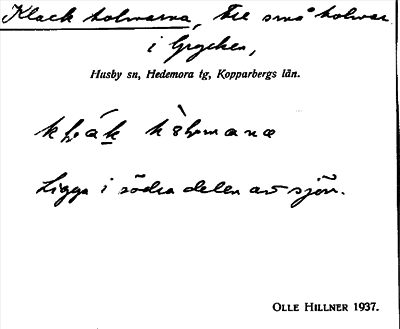 Klackholmarna, tre små holmar
i Grycken,
Husby sn, Hedemora tg, Kopparbergs län.
Ligga i södra delen av sjön.
OLLE HILLNER 1937.